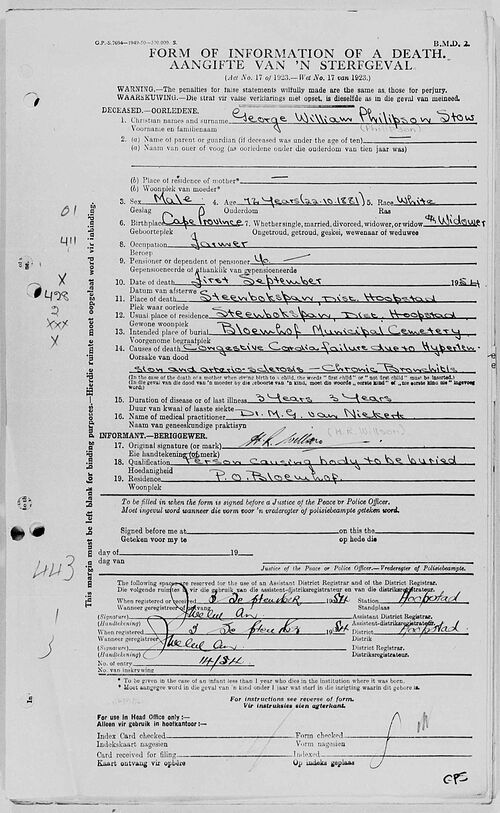 G.P.-S.7694—1949-50—
B.M.D. 2.
FORM OF INFORMATION OF A DEATH.
AANGIFTE VAN 'N STERFGEVAL.
(Act No. 17 of 1923.—Wet No. 17 van 1923.)
WARNING.—The penalties for false statements wilfully made are the same as those for perjury.
WAARSKUWING.—Die straf vir valse verklarings met opset, is dieselfde as in die geval van meineed.
DECEASED.—OORLEDENE.
1. Christian names and surname George William Philipson Stow
Voornamе en familienaam (Philipson)
2. (a) Name of parent or guardian (if deceased was under the age of ten)
(a) Naam van ouer of voog (as oorledene onder die ouderdom van tien jaar was)
(b) Place of residence of mother* —
(b) Woonplek van moeder*
3. Sex Male 4. Age 72 Years (22.10.1881) 5. Race White
Geslag Ouderdom Ras
6. Birthplace Cape Province 7. Whether single, married, divorced, widower, or widow Widower
Geboorteplek Ongetroud, getroud, geskei, wewenaar of weduwee
8. Occupation Farmer
Beroep
9. Pensioner or dependent of pensioner —
Gepensioeneerde of afhanklik van gepensioeneerde
10. Date of death First September 1954
Datum van afsterwe
11. Place of death Steenbokspan, Dist. Hoopstad
Plek waar oorlede
12. Usual place of residence Steenbokspan, Dist. Hoopstad
Gewone woonplek
13. Intended place of burial Bloemhof Municipal Cemetery
Voorgenome begraafplek
14. Causes of death Congestive Cardia failure due to Hyperten-
Oorsake van dood
sion and arterio-sclerosis — Chronic Bronchitis
15. Duration of disease or of last illness 3 Years 3 Years
Duur van kwaal of laaste siekte
16. Name of medical practitioner Dr. M.G. van Niekerk
Naam van geneeskundige praktisyn
INFORMANT.—BERIGGEWER.
17. Original signature (or mark)
Eie handtekening (of merk)
18. Qualification Person causing body to be buried
Hoedanigheid
19. Residence P.O. Bloemhof
Woonplek
To be filled in when the form is signed before a Justice of the Peace or Police Officer.
Moet ingevul word wanneer die vorm voor 'n vrederegter of polisiebeampte geteken word.
Signed before me at on this the
Geteken voor my te op hede die
day of 19
dag van
Justice of the Peace or Police Officer.—Vrederegter of Polisiebeampte.
The following spaces are reserved for the use of an Assistant District Registrar and of the District Registrar.
Die volgende ruimtes is vir die gebruik van die assistent-distriksregistrateur en van die distriksregistrateur.
When registered or received 3 September 1954 Station Hoopstad
Wanneer geregistreer of ontvang Standplaas
(Signature) Assistant District Registrar.
(Handtekening) Assistent-distriksregistrateur.
When registered 3 September 1954 District Hoopstad
Wanneer geregistreer Distrik
(Signature) District Registrar.
(Handtekening) Distriksregistrateur.
No. of entry 14/54
No. van inskrywing
* To be given in the case of an infant less than 1 year who dies in the institution where it was born.
* Moet aangegee word in die geval van 'n kind onder 1 jaar wat sterf in die inrigting waarin dit gebore is.
For instructions see reverse of form.
Vir instruksies sien agterkant.
For use in Head Office only:—
Alleen vir gebruik in hoofkantoor:—
Index Card checked Form checked
Indekskaart nagesien Vorm nagesien
Card received for filing Indexed
Kaart ontvang vir opbêre Op indeks geplaas
GPS
This margin must be left blank for binding purposes.—Hierdie ruimte moet oopgelaat word vir inbinding.
01
411
X
498
2
XXX
X
443